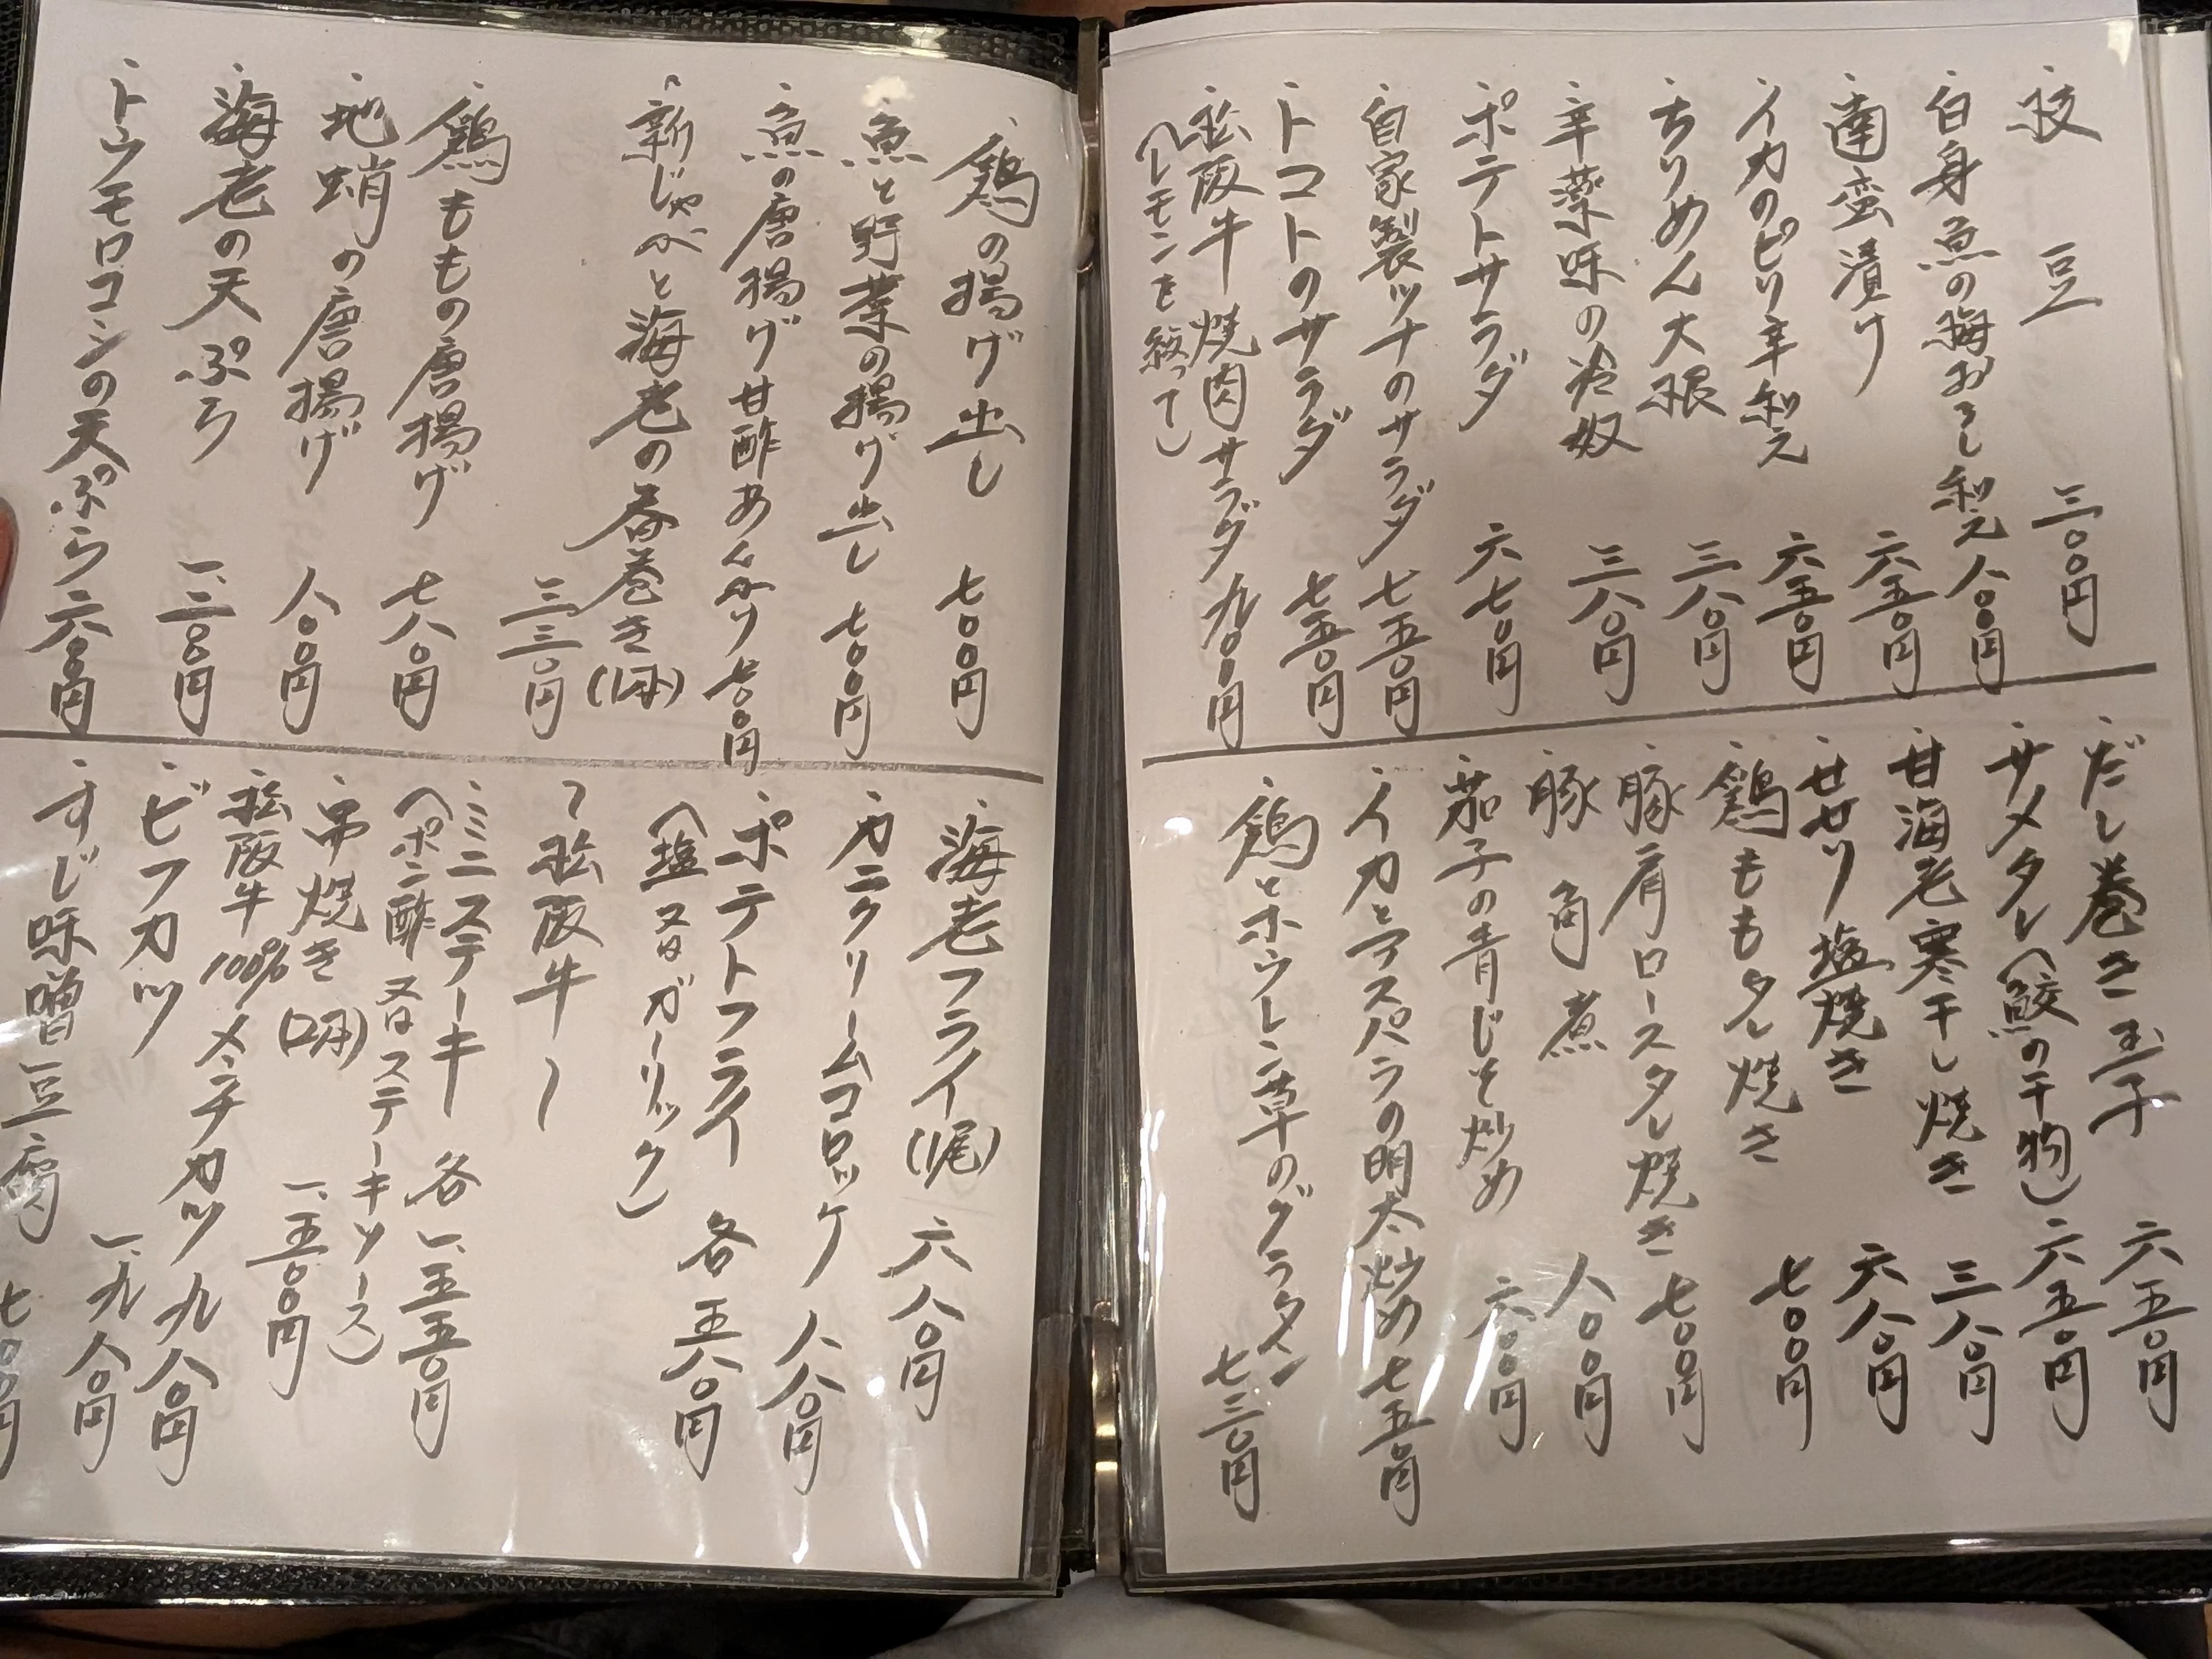 ・枝豆 三〇〇円
・白身魚の梅おろし和え 八〇〇円
・南蛮漬け 六五〇円
・イカのピリ辛和え 六五〇円
・ちりめん大根 三八〇円
・辛薬味の冷奴 三八〇円
・ポテトサラダ 六七〇円
・自家製ツナのサラダ 七五〇円
・トコトのサラダ 七五〇円
・松阪牛焼肉サラダ 九〇〇円
(レモンを絞って)
・だし巻き玉子 六五〇円
・サメタレ(鮫の干物) 六五〇円
・甘海老寒干し焼き 三八〇円
・せせり塩焼き 六八〇円
・鶏ももタレ焼き 七〇〇円
・豚肩ロースタレ焼き 七〇〇円
・豚角煮 八〇〇円
・茄子の青じそ炒め 六〇〇円
・イカとアスパラの明太炒め 七五〇円
・鶏とホウレン草のグラタン 七三〇円
・鶏の揚げ出し 七〇〇円
・魚と野菜の揚げ出し 七〇〇円
・魚の唐揚げ甘酢あんかけ 七〇〇円
・新じゃがと海老の春巻き(1本)
三三〇円
・鶏ももの唐揚げ 七八〇円
・地蛸の唐揚げ 八〇〇円
・海老の天ぷら 一、三〇〇円
・トウモロコシの天ぷら 六〇〇円
・海老フライ(1尾) 六八〇円
・カニクリームコロッケ 八八〇円
・ポテトフライ 各五八〇円
(塩又はガーリック)
〜松阪牛〜
・ミニステーキ 各一、五五〇円
(ポン酢又はステーキソース)
・串焼き(2本) 一、五〇〇円
・松阪牛100%メンチカツ 九八〇円
・ビフカツ 一、九八〇円
・すじ味噌豆腐 七〇〇円